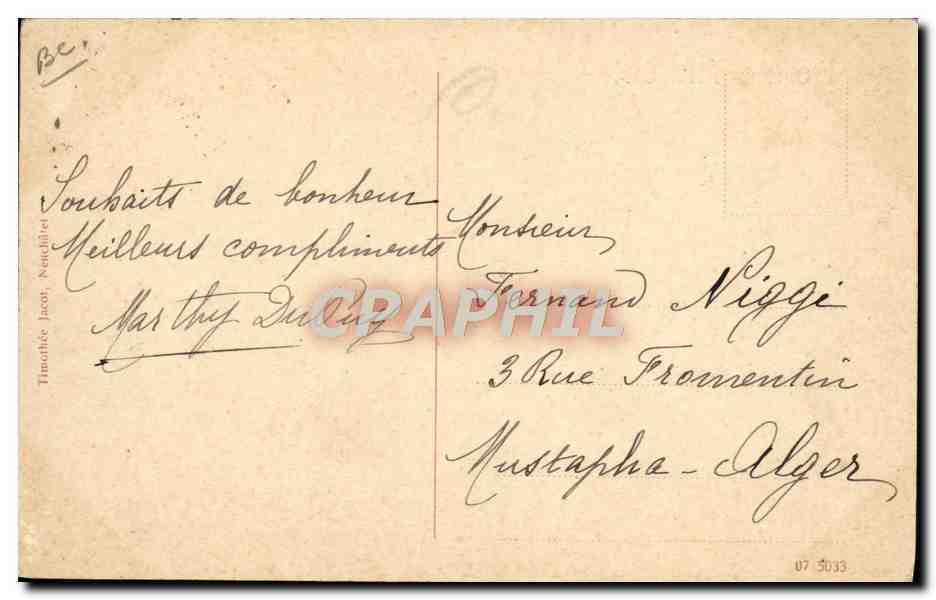 Bc.
Souhaits de bonheur
Meilleurs compliments
Marthy Dubuy
Timothée Jacot, Neuchâtel
CPAPHIL
Monsieur
Fernand Niggi
3 Rue Fromentin
Mustapha - Alger
07 5033